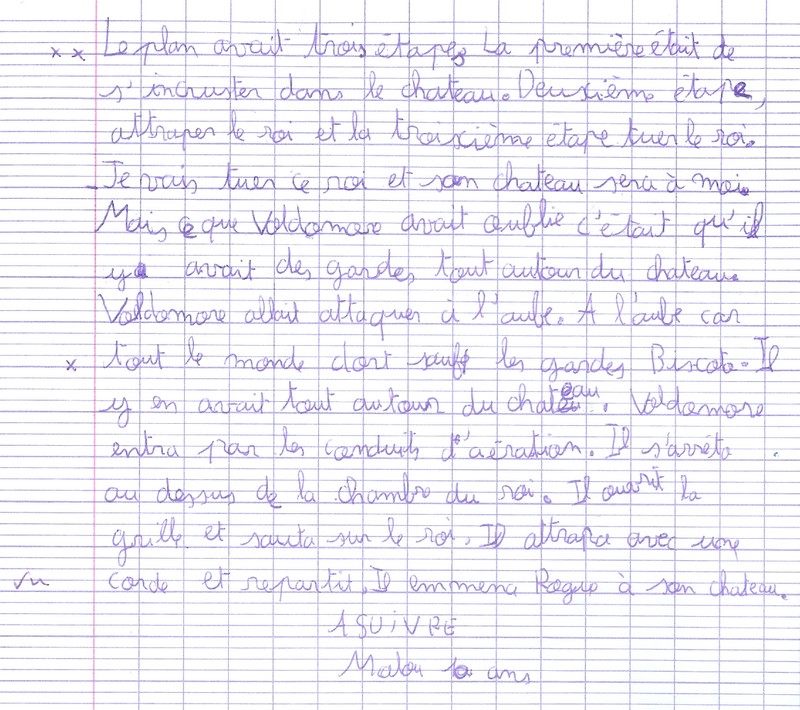 x x Le plan avait trois étapes La première était de
s'incruster dans le chateau. Deuxième étape,
attraper le roi et la troixième étape tuer le roi.
_Je vais tuer ce roi et son chateau sera à moi.
Mais ce que Voldomore avait oublié c'était qu'il
y avait des gardes tout autour du chateau.
Voldomore allait attaquer à l'aube. A l'aube car
x tout le monde dort sauf les gardes Biscoto. Il
y en avait tout autour du chateau. Voldomore
entra par les conduits d'aération. Il s'arrêta
au dessus de la chambre du roi. Il ouvrit la
grille et sauta sur le roi. Il attrapa avec une
vu corde et repartit. Il emmena Rogue à son chateau.
A SUIVRE
Malou 10 ans